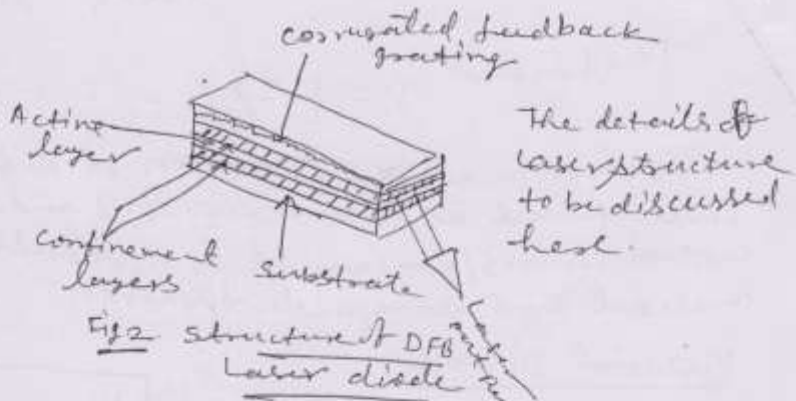 corrugated feedback
grating
Active
layer
The details of
laser structure
to be discussed
here.
Confinement
layers
Substrate
Fig 2 Structure of DFB
Laser diode